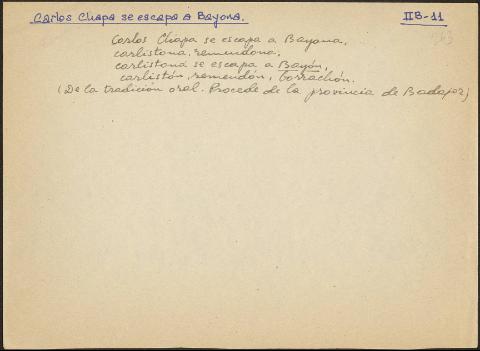 Carlos Chapa se escapa a Bayona. IIB-11
Carlos Chapa se escapa a Bayona,
carlistona, remendona,
carlistona se escapa a Bayón,
carlistón, remendón, borrachón.
(De la tradición oral. Procede de la provincia de Badajoz)